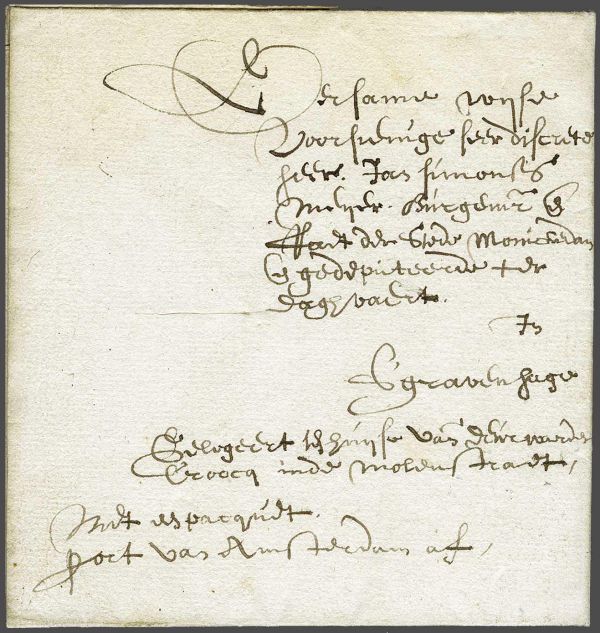 Eersame wijse
Voorsienige seer discrete
heer. Jan simonss
Meijer. Burgemr. &
Raedt der Stede Monickendam
& gedeputeerde ter
daghvaert.
In
S gravenhage
Gelogeert ten huijse van
Croocq inde molenstraet,
Met een pacquet.
port van Amsterdam af,